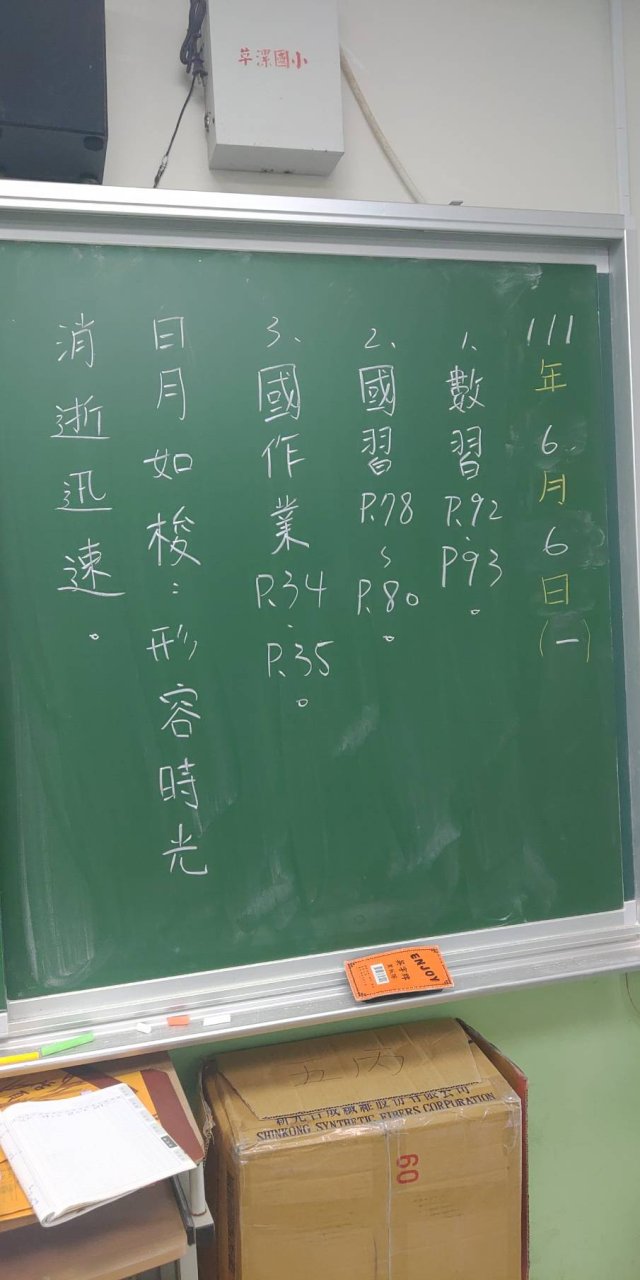 草漯國小
111年6月6日(一)
1、數習P.92、P93。
2、國習P.78~P.80。
3、國作業P.34、P.35。
日月如梭：形容時光
消逝迅速。
ENJOY
五丙
新光合成纖維股份有限公司
SHINKONG SYNTHETIC FIBERS CORPORATION
09